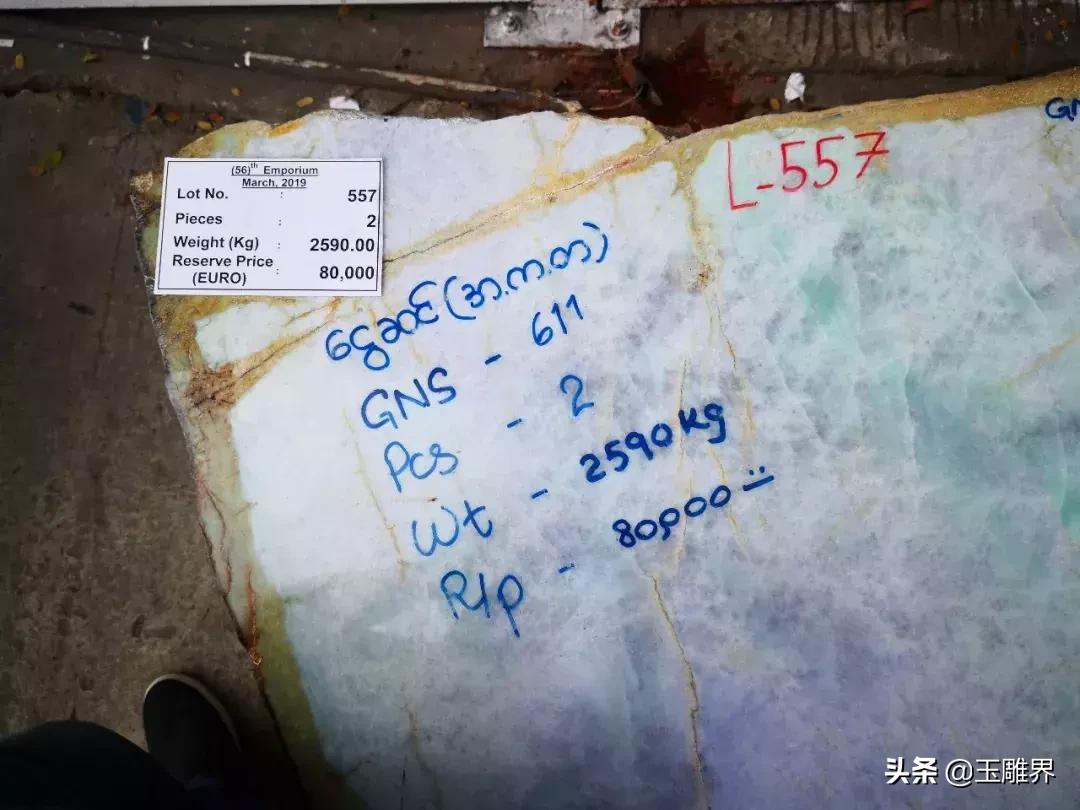 (56)th Emporium
March, 2019
Lot No. : 557
Pieces : 2
Weight (Kg) : 2590.00
Reserve Price
(EURO) : 80,000
L-557
GN
(အ.က.တ)
GNS - 611
Pcs - 2
Wt - 2590 Kg
R/p - 80,000
头条 @玉雕界